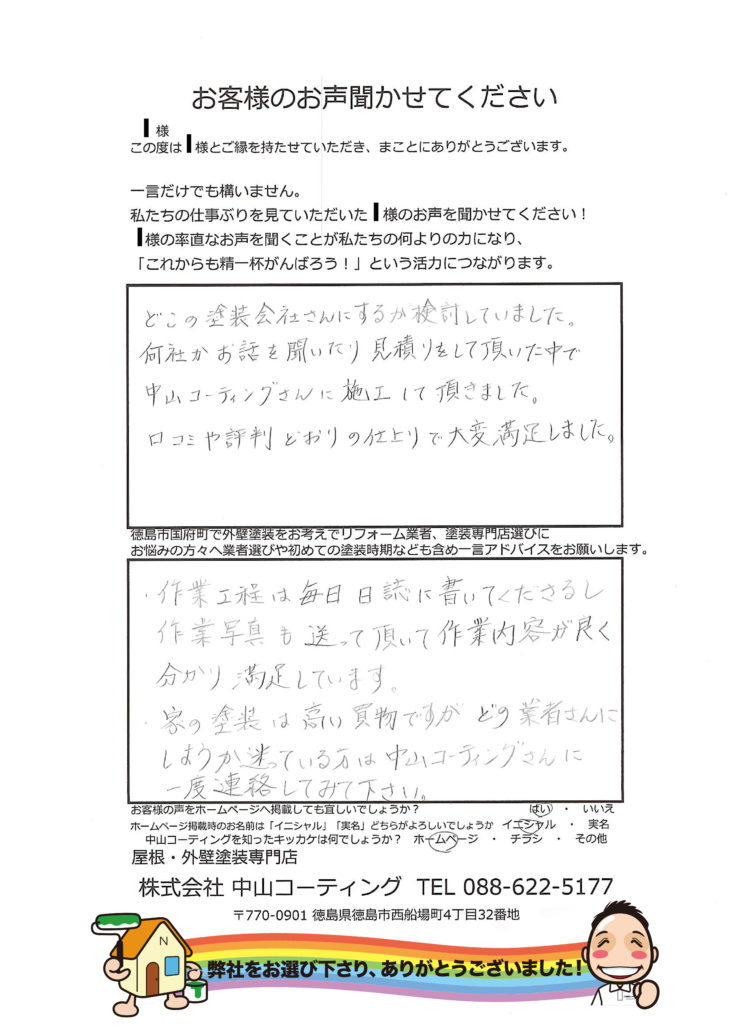 お客様のお声聞かせてください
I 様
この度は I 様とご縁を持たせていただき、まことにありがとうございます。
一言だけでも構いません。
私たちの仕事ぶりを見ていただいた I 様のお声を聞かせてください！
I 様の率直なお声を聞くことが私たちの何よりの力になり、
「これからも精一杯がんばろう！」という活力につながります。
どこの塗装会社さんにするか検討していました。
何社かお話を聞いたり見積りをして頂いた中で
中山コーティングさんに施工して頂きました。
口コミや評判どおりの仕上りで大変満足しました。
徳島市国府町で外壁塗装をお考えでリフォーム業者、塗装専門店選びに
お悩みの方々へ業者選びや初めての塗装時期なども含め一言アドバイスをお願いします。
・作業工程は毎日日誌に書いてくださるし
作業写真も送って頂いて作業内容が良く
分かり満足しています。
・家の塗装は高い買物ですがどの業者さんに
しようか迷っている方は中山コーティングさんに
一度連絡してみて下さい。
お客様の声をホームページへ掲載しても宜しいでしょうか？ はい ・ いいえ
ホームページ掲載時のお名前は「イニシャル」「実名」どちらがよろしいでしょうか イニシャル ・ 実名
中山コーティングを知ったキッカケは何でしょうか？ ホームページ ・ チラシ ・ その他
屋根・外壁塗装専門店
株式会社 中山コーティング TEL 088-622-5177
〒770-0901 徳島県徳島市西船場町4丁目32番地
N
弊社をお選び下さり、ありがとうございました！